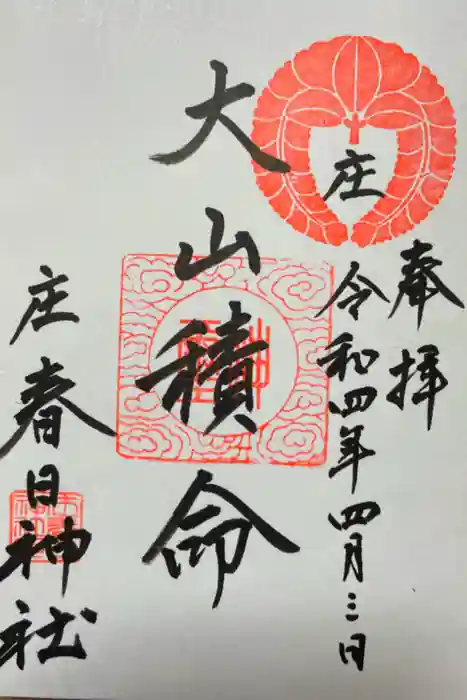 奉拝
令和四年四月三日
庄
大山積命
庄春日神社